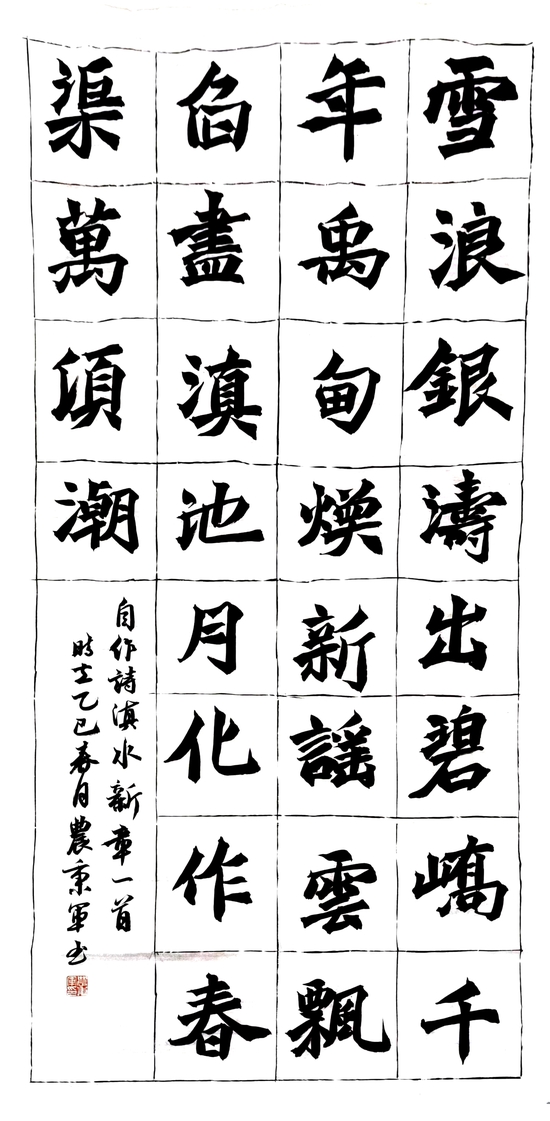 雪浪銀濤出碧嶠千
年禹甸煥新謡雲飄
舀盡滇池月化作春
渠萬頃潮
自作詩滇水新章一首
時在乙巳春月農秉軍书